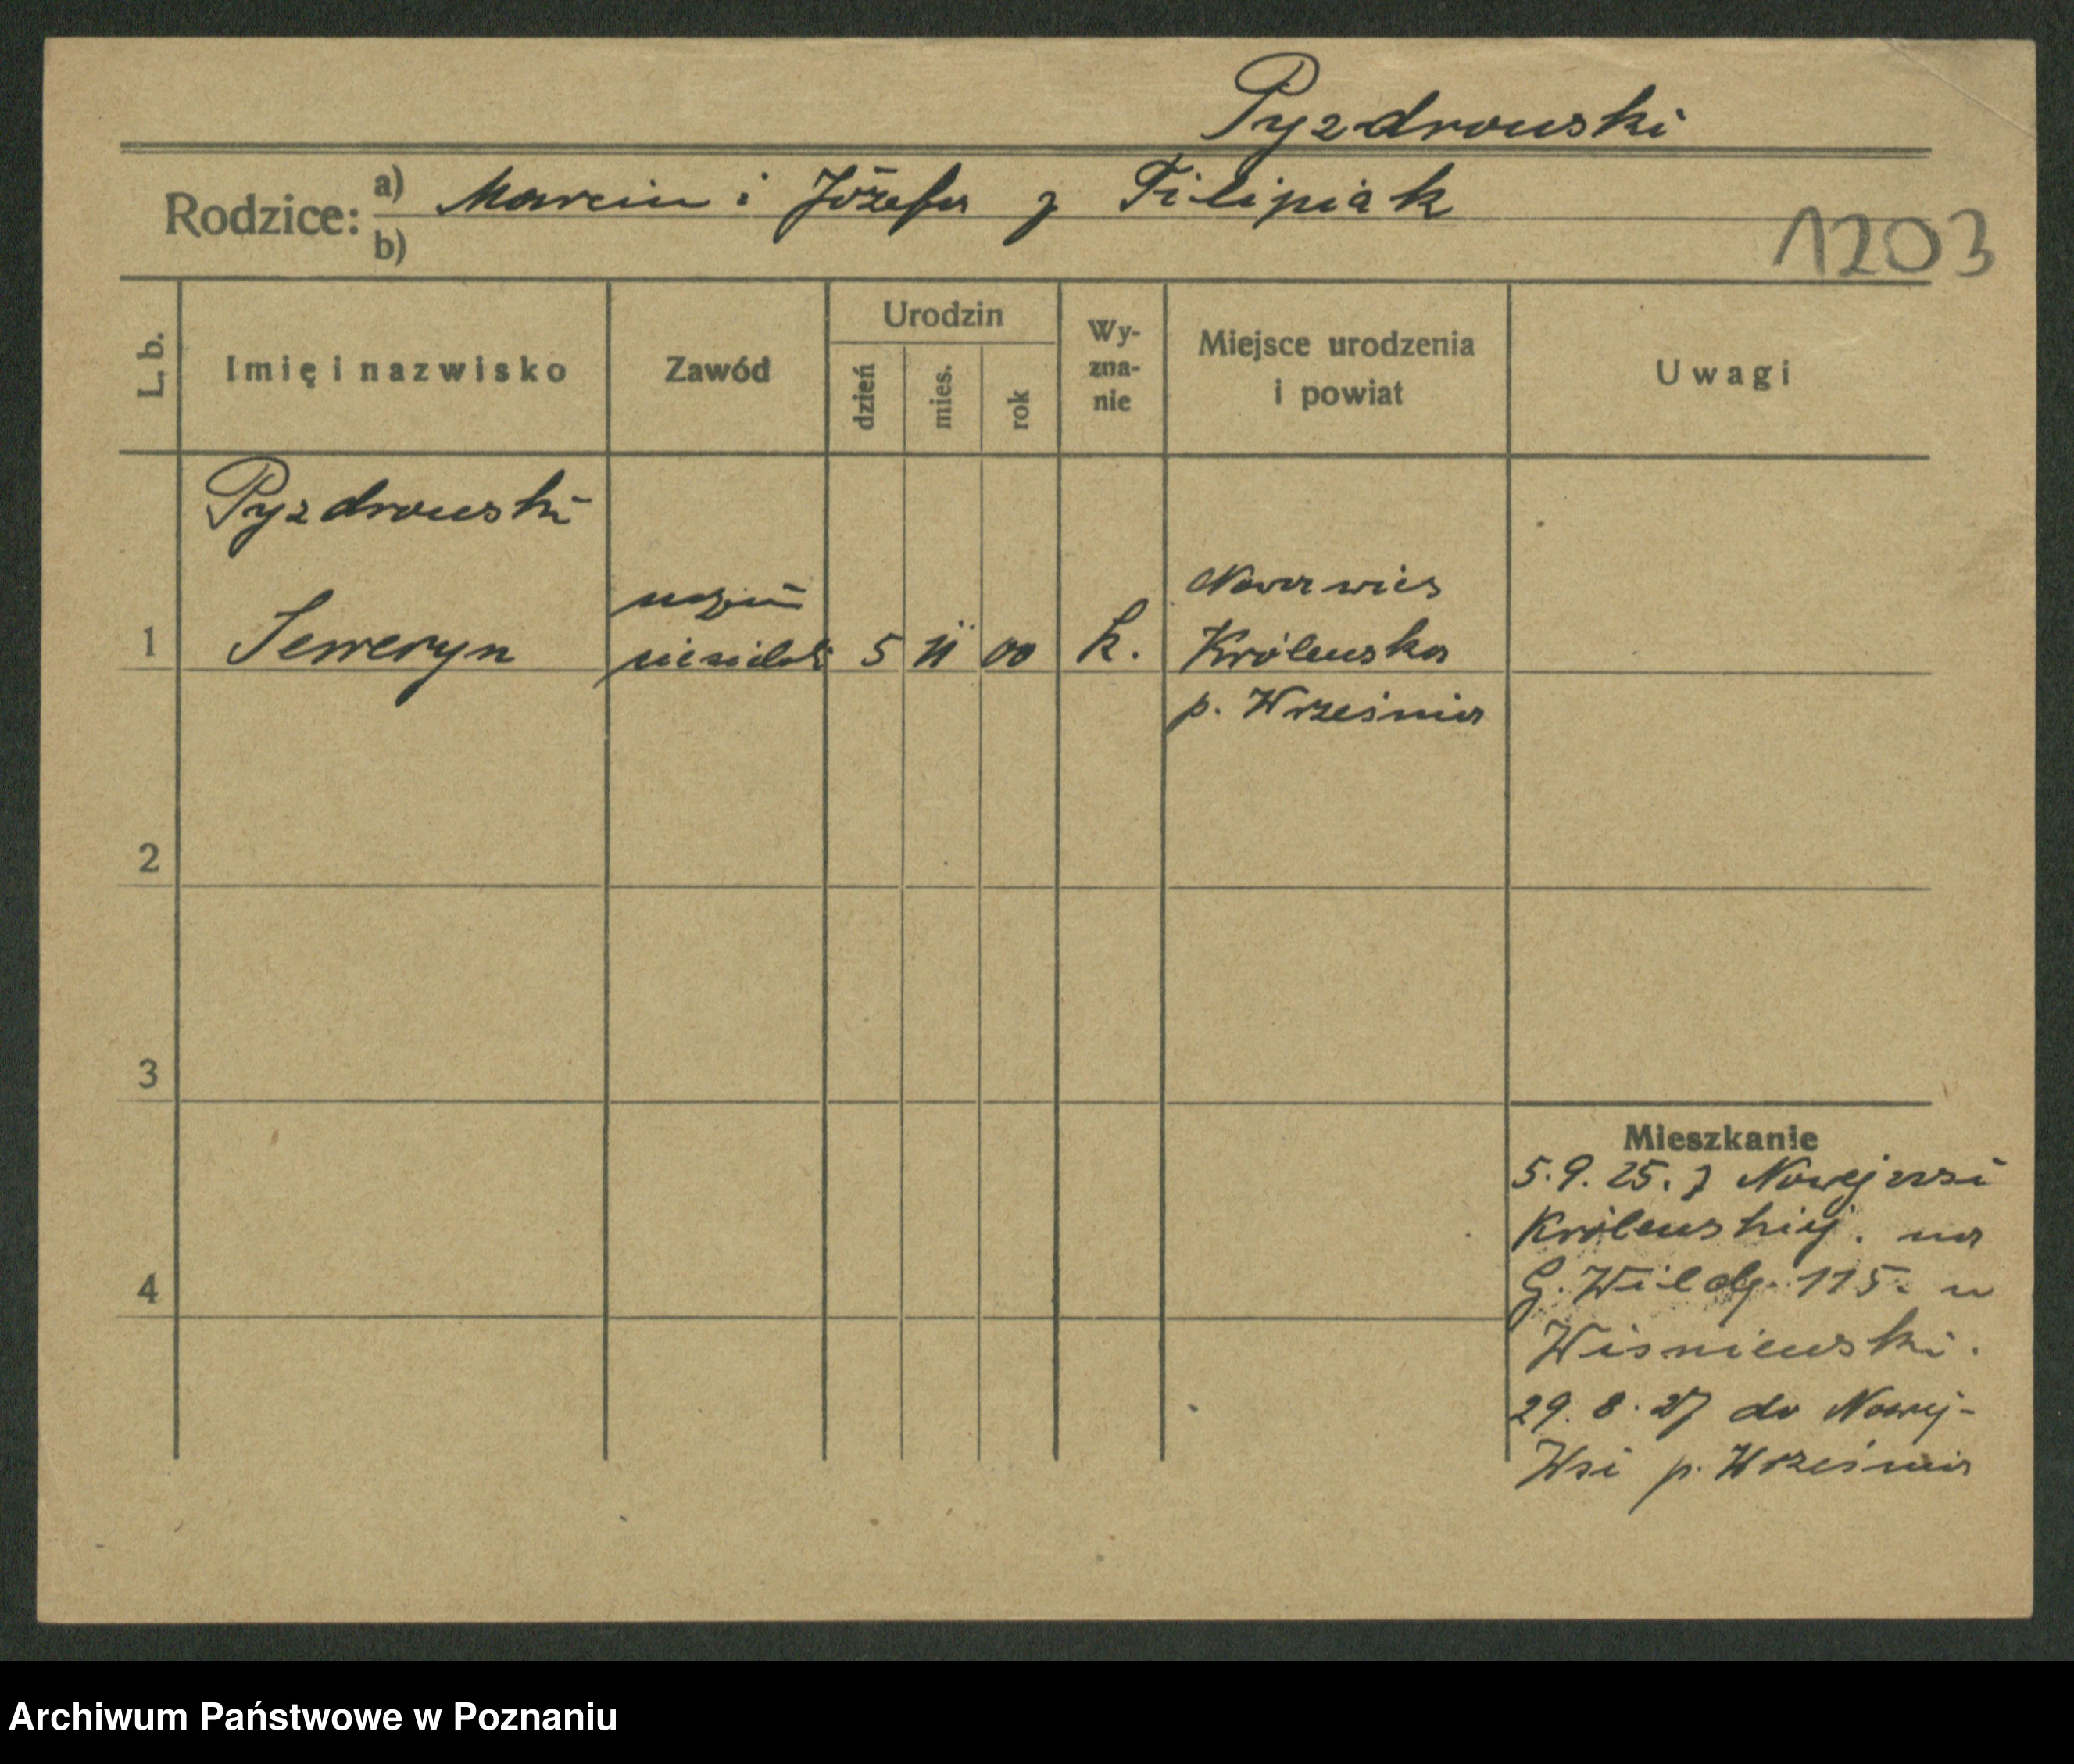 Pyzdrowski
Rodzice: a) Marcin i Józefa z Filipiak
b)
1203
L. b.
Imię i nazwisko
Zawód
Urodzin
dzień
mies.
rok
Wy-
zna-
nie
Miejsce urodzenia
i powiat
Uwagi
Pyzdrowski
1 Seweryn
uczeń
5 11 00 k.
Nowa wieś
Królewska
p. Września
2
3
4
Mieszkanie
5.9.25. z Nowej wsi
Królewskiej. na
G. Wildę. 115. u
Wiśniewski.
29.8.27 do Nowej-
Wsi p. Września
Archiwum Państwowe w Poznaniu